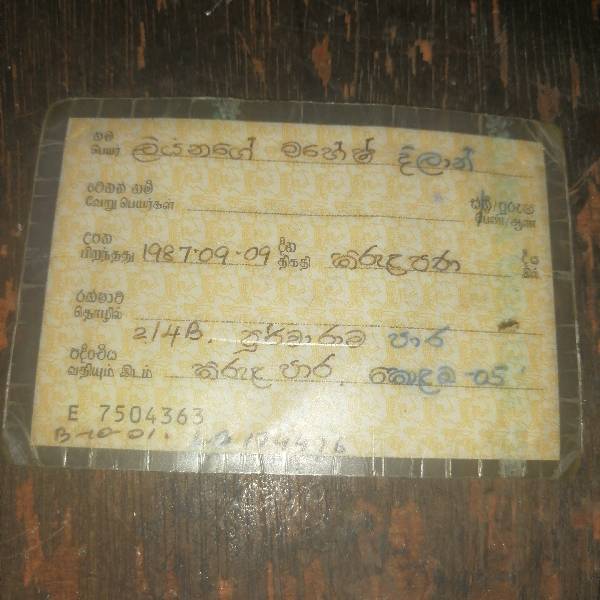 නම
பெயர் ලියනගේ මහේෂ් දිලාන්
වෙනත් නම්
வேறு பெயர்கள்
ස්ත්‍රී/පුරුෂ
பெண்/ஆண்
උපන் දින
பிறந்தது 1987-09-09 திகதி කිරුළපන
රක්ෂාව
தொழில்
214B, පූර්වාරාම පාර
පදිංචිය
வதியும் இடம் කිරුළ පාර, කොළඹ -05
E 7504363